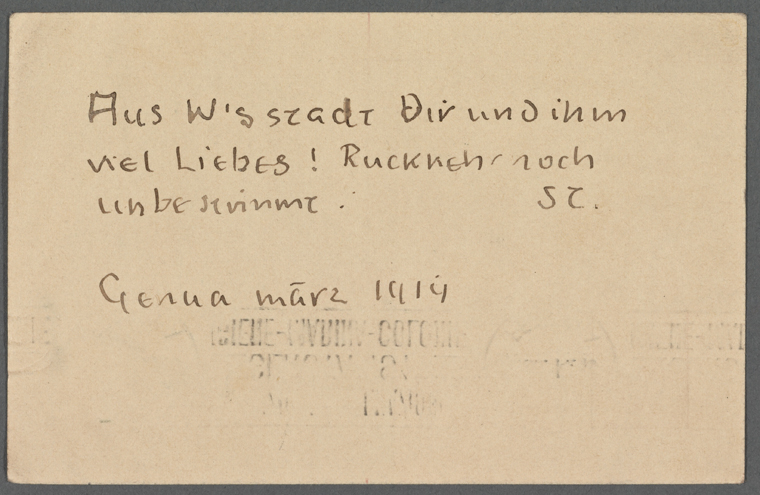 Aus W's stadt Dir und ihm
viel Liebes! Ruckkehr noch
unbestimmt. St.
Genua märz 1914